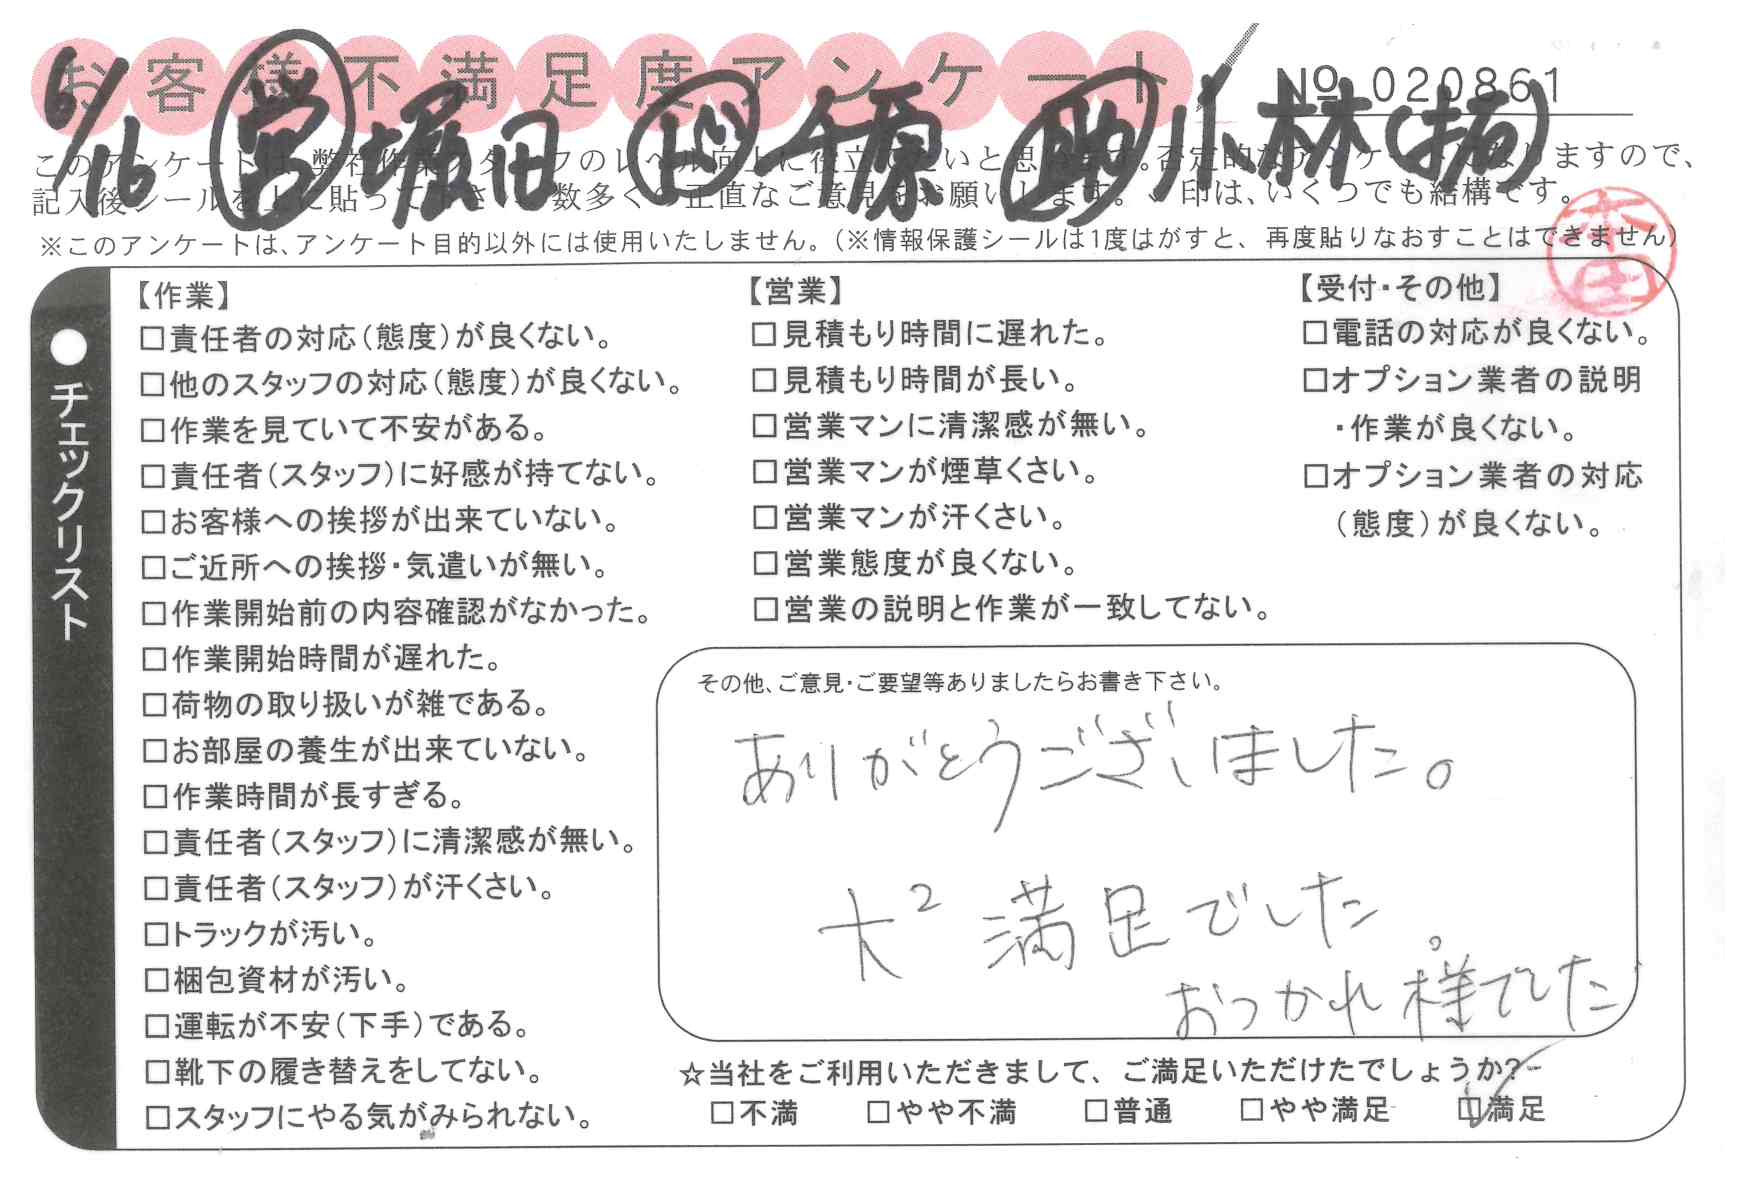 お客様不満足度アンケート
№ 020861
6/16 営 堀田 ド 千原 助 小林(拓)
このアンケートは、弊社作業スタッフのレベル向上に役立てたいと思います。否定的なアンケートになりますので、
記入後シールを上に貼って下さい。数多くの正直なご意見をお願いします。✓印は、いくつでも結構です。
※このアンケートは、アンケート目的以外には使用いたしません。(※情報保護シールは1度はがすと、再度貼りなおすことはできません)
本田
●チェックリスト
【作業】
□責任者の対応(態度)が良くない。
□他のスタッフの対応(態度)が良くない。
□作業を見ていて不安がある。
□責任者(スタッフ)に好感が持てない。
□お客様への挨拶が出来ていない。
□ご近所への挨拶・気遣いが無い。
□作業開始前の内容確認がなかった。
□作業開始時間が遅れた。
□荷物の取り扱いが雑である。
□お部屋の養生が出来ていない。
□作業時間が長すぎる。
□責任者(スタッフ)に清潔感が無い。
□責任者(スタッフ)が汗くさい。
□トラックが汚い。
□梱包資材が汚い。
□運転が不安(下手)である。
□靴下の履き替えをしてない。
□スタッフにやる気がみられない。
【営業】
□見積もり時間に遅れた。
□見積もり時間が長い。
□営業マンに清潔感が無い。
□営業マンが煙草くさい。
□営業マンが汗くさい。
□営業態度が良くない。
□営業の説明と作業が一致してない。
【受付・その他】
□電話の対応が良くない。
□オプション業者の説明
・作業が良くない。
□オプション業者の対応
(態度)が良くない。
その他、ご意見・ご要望等ありましたらお書き下さい。
ありがとうございました。
大² 満足でした。
おつかれ様でした
☆当社をご利用いただきまして、ご満足いただけたでしょうか?
□不満 □やや不満 □普通 □やや満足 ☑満足